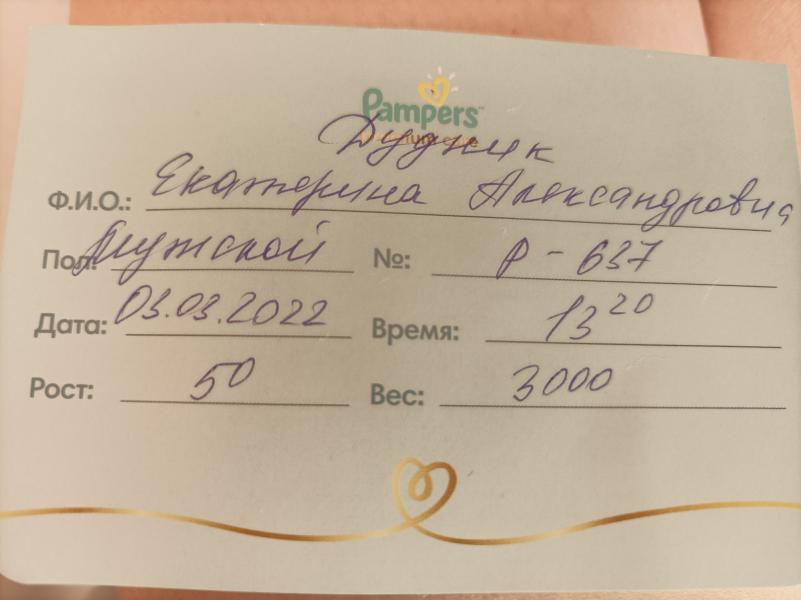 Pampers
Дудник
Ф.И.О.: Екатерина Александровна
Пол: Мужской №: Р - 637
Дата: 03.03.2022 Время: 13 20
Рост: 50 Вес: 3000